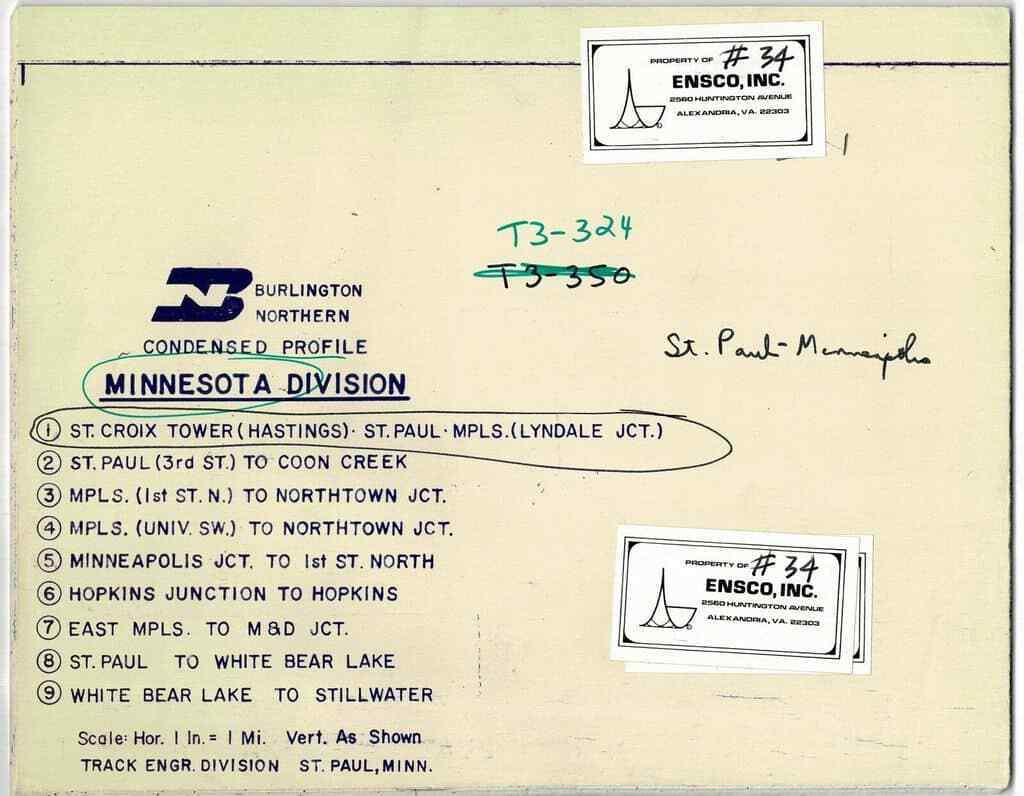 PROPERTY OF # 34
ENSCO, INC.
2560 HUNTINGTON AVENUE
ALEXANDRIA, VA. 22303
T3-324
T3-350
BN BURLINGTON
NORTHERN
CONDENSED PROFILE
MINNESOTA DIVISION
St. Paul-Minneapolis
1 ST. CROIX TOWER (HASTINGS)· ST. PAUL · MPLS. (LYNDALE JCT.)
2 ST. PAUL (3rd ST.) TO COON CREEK
3 MPLS. (1st ST. N.) TO NORTHTOWN JCT.
4 MPLS. (UNIV. SW.) TO NORTHTOWN JCT.
5 MINNEAPOLIS JCT. TO 1st ST. NORTH
6 HOPKINS JUNCTION TO HOPKINS
7 EAST MPLS. TO M&D JCT.
8 ST. PAUL TO WHITE BEAR LAKE
9 WHITE BEAR LAKE TO STILLWATER
PROPERTY OF # 34
ENSCO, INC.
2560 HUNTINGTON AVENUE
ALEXANDRIA, VA. 22303
Scale: Hor. 1 In. = 1 Mi. Vert. As Shown
TRACK ENGR. DIVISION ST. PAUL, MINN.